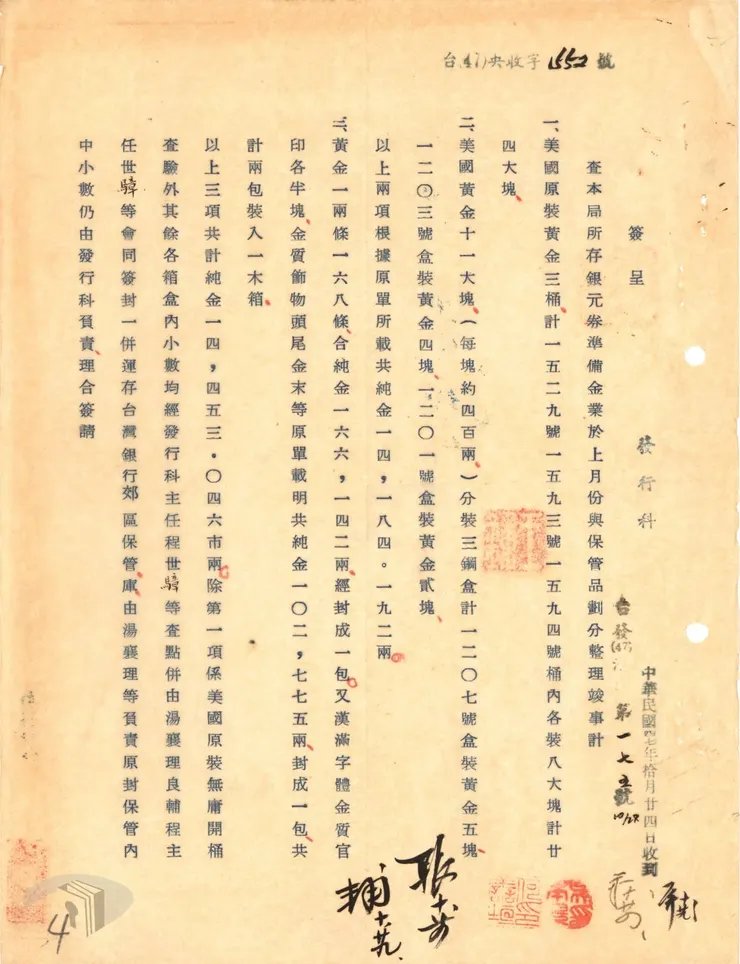 台(47)央收字1552號
中華民國四七年拾月廿四日收到
台發(47)第一七五號
10/28
發行科
簽呈
查本局所存銀元券準備金業於上月份與保管品劃分整理竣事計
一、美國原裝黃金三桶、計一五二九號一五九三號一五九四號桶內各裝八大塊計廿
四大塊、
二、美國黃金十一大塊、(每塊約四百兩、)分裝三鋼盒計一二〇七號盒裝黃金五塊、
一二〇三號盒裝黃金四塊、一二〇一號盒裝黃金貳塊、
以上兩項根據原單所載共純金一四,一八四。一九二兩
三、黃金一兩條一六八條、合純金一六六,一四二兩、經封成一包又漢滿字體金質官
印各半塊、金質飾物頭尾金末等原單載明共純金一〇二,七七五兩、封成一包、共
計兩包裝入一木箱、
以上三項共計純金一四,四五三.〇四六市兩、除第一項係美國原裝無庸開桶
查驗外其餘各箱盒內小數均經發行科主任程世騿等查點併由湯襄理良輔程主
任世騿等會同簽封一併運存台灣銀行郊區保管庫、由湯襄理等負責原封保管內
中小數仍由發行科負責、理合簽請
輔
十廿九
4